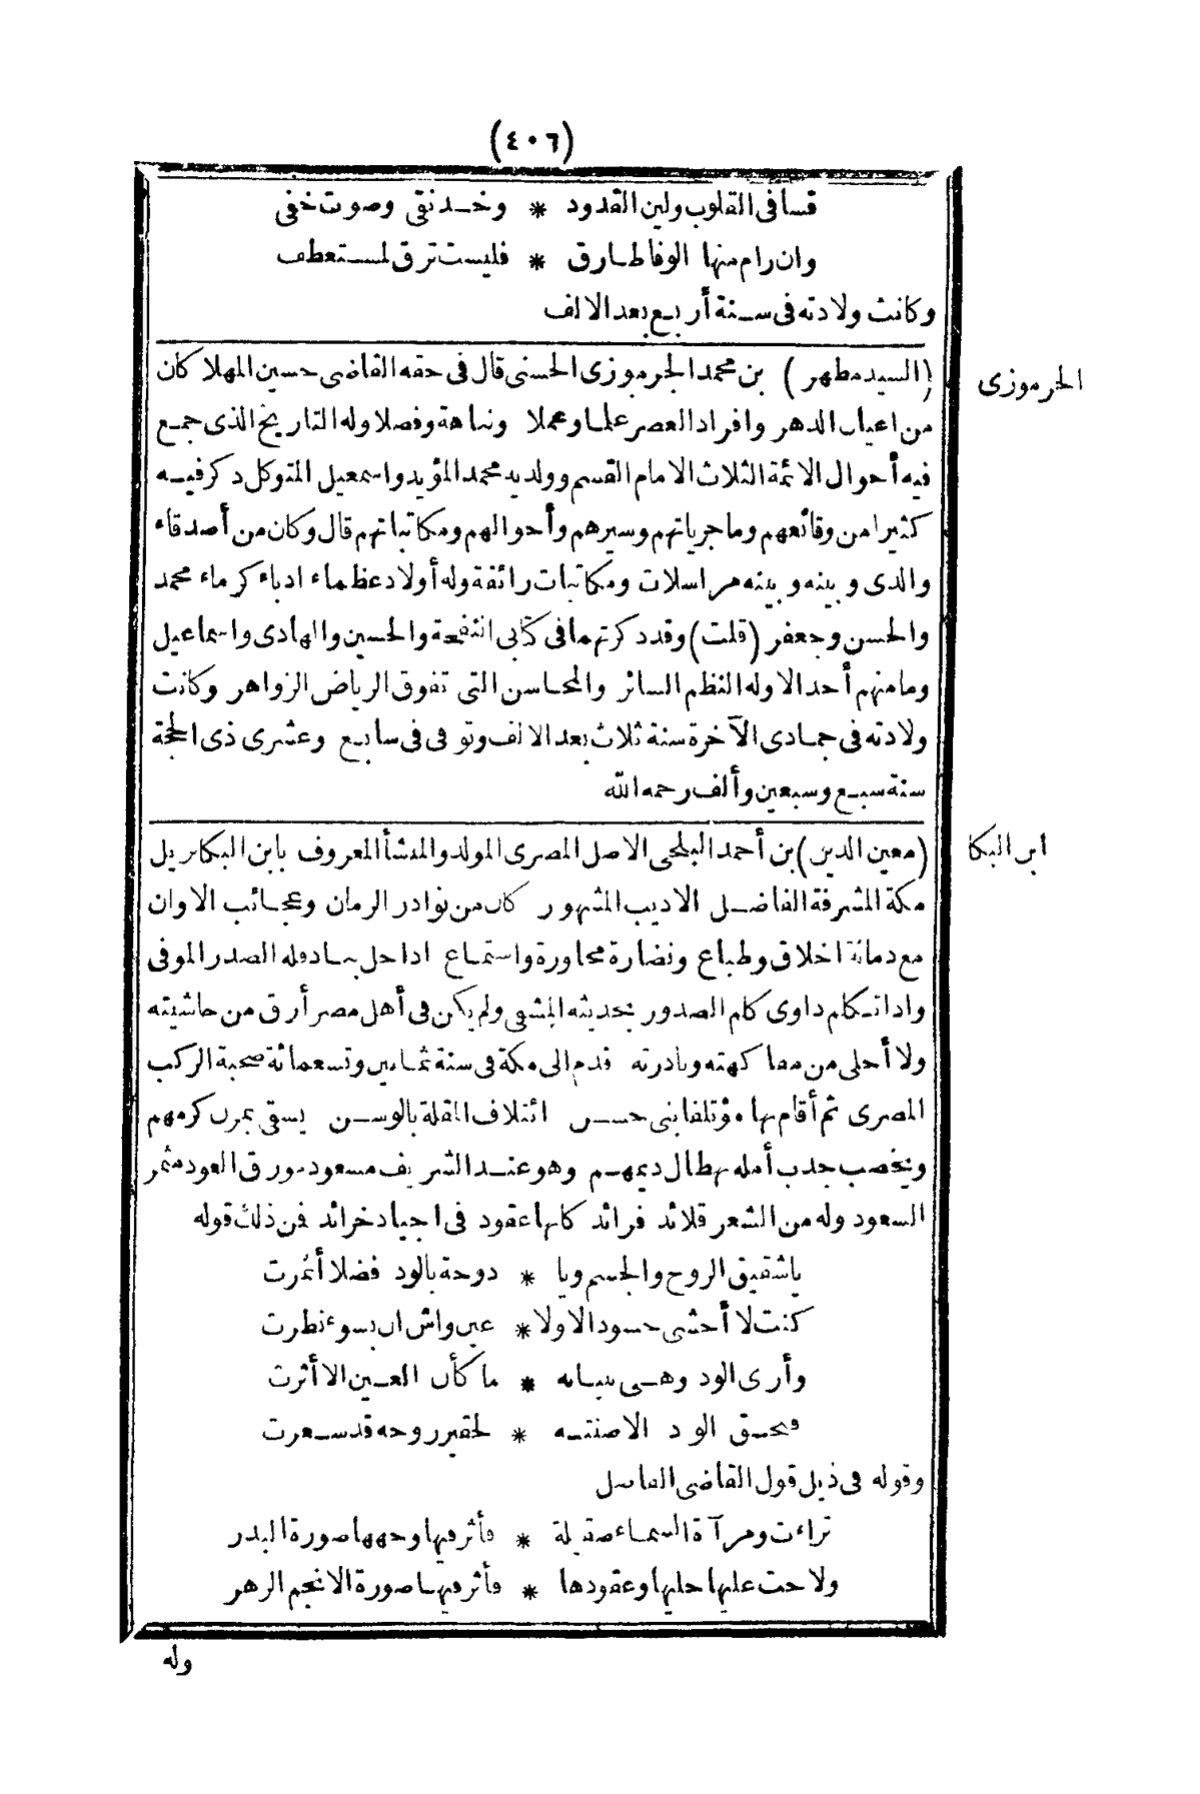 (٤٠٦)
قسا فى القلوب ولين القدود * وخد نقى وصوت خفى
وان رام منها الوفا طارق * فليست ترق لمستعطف
وكانت ولادته فى سنة أربع بعد الالف
(السيد مطهر) بن محمد الجرموزى الحسنى قال فى حقه القاضى حسين المهلا كان
الجرموزى
من اعيان الدهر وافراد العصر علما وعملا ونباهة وفضلا وله التاريخ الذى جمع
فيه أحوال الائمة الثلاث الامام القسم وولديه محمد المؤيد واسمعيل المتوكل ذكر فيه
كثيرا من وقائعهم وماجرياتهم وسيرهم وأحوالهم ومكاتباتهم قال وكان من أصدقاء
والدى وبينه وبينه مراسلات ومكاتبات رائقة وله أولاد عظماء ادباء كرماء محمد
والحسن وجعفر (قلت) وقد ذكرتهما فى كتابى النفحة والحسين والهادى واسماعيل
ومامنهم أحد الا وله النظم السائر والمحاسن التى تفوق الرياض الزواهر وكانت
ولادته فى جمادى الآخرة سنة ثلاث بعد الالف وتوفى فى سابع وعشرى ذى الحجة
سنة سبع وسبعين وألف رحمه الله
(معين الدين) بن أحمد البلخى الاصل المصرى المولد والمنشأ المعروف بابن البكا نزيل
ابن البكا
مكة المشرفة الفاضل الاديب المشهور كان من نوادر الزمان وعجائب الاوان
مع دماثة اخلاق وطباع ونضارة محاورة واستماع اذا حل بناد فله الصدر الموفى
واذا تكلم داوى كلم الصدور بحديثه المشفى ولم يكن فى أهل مصر أرق من حاشيته
ولا أحلى من مفاكهته ونادرته قدم الى مكة فى سنة ثمانين وتسعمائة صحبة الركب
المصرى ثم أقام بها مؤتلفا ببنى حسن ائتلاف المقلة بالوسن يسقى بمزن كرمهم
ويخصب جدب أمله بهطال ديمهم وهو عند الشريف مسعود مورق العود مثمر
السعود وله من الشعر قلائد فرائد كانها عقود فى اجياد خرائد فمن ذلك قوله
ياشقيق الروح والجسم ويا * دوحة بالود فضلا أثمرت
كنت لا أخشى حسود الاولا * عين واش ان بسوء نظرت
وأرى الود وهى بنيانه * ما كأن العين الا أثرت
فبحق الود الا صنته * لحقير روحه قد سعرت
وقوله فى ذيل قول القاضى الفاضل
تراءت ومرآة السماء صقيلة * فأثر فيها وجهها صورة البدر
ولاحت عليها حليها وعقودها * فأثر فيها صورة الانجم الزهر
وله